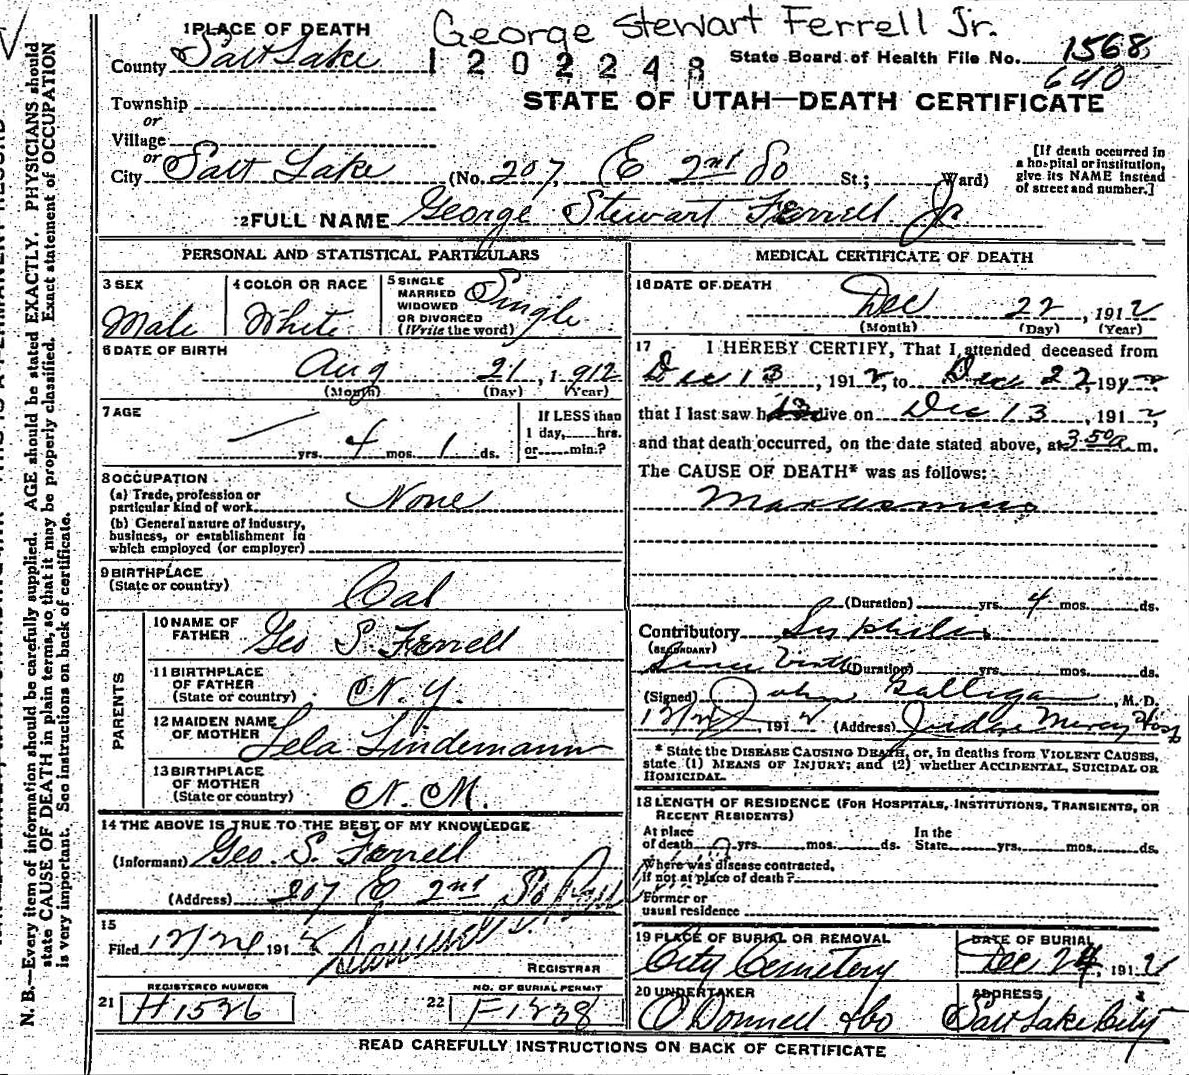 George Stewart Ferrell Jr.
1 PLACE OF DEATH
County Salt Lake
1202248
State Board of Health File No. 1568
640
STATE OF UTAH—DEATH CERTIFICATE
Township
or
Village
or
City Salt Lake (No. 207, E 2nd So St.; Ward)
[If death occurred in a hospital or institution, give its NAME instead of street and number.]
2 FULL NAME George Stewart Ferrell Jr
PERSONAL AND STATISTICAL PARTICULARS
3 SEX
Male
4 COLOR OR RACE
White
5 SINGLE
MARRIED
WIDOWED
OR DIVORCED
(Write the word)
Single
6 DATE OF BIRTH
Aug 21, 1912
(Month) (Day) (Year)
7 AGE
— yrs. 4 mos. 1 ds.
If LESS than
1 day, hrs.
or min.?
8 OCCUPATION
(a) Trade, profession or
particular kind of work None
(b) General nature of industry,
business, or establishment in
which employed (or employer)
9 BIRTHPLACE
(State or country) Cal
PARENTS
10 NAME OF
FATHER Geo S. Ferrell
11 BIRTHPLACE
OF FATHER
(State or country) N.Y.
12 MAIDEN NAME
OF MOTHER Lela Lindemann
13 BIRTHPLACE
OF MOTHER
(State or country) N. M.
14 THE ABOVE IS TRUE TO THE BEST OF MY KNOWLEDGE
(Informant) Geo. S. Ferrell
(Address) 207 E 2nd So
15
Filed 12/24 1912
REGISTRAR
REGISTERED NUMBER
21 H1526
NO. OF BURIAL PERMIT
22 F1238
MEDICAL CERTIFICATE OF DEATH
16 DATE OF DEATH
Dec 22, 1912
(Month) (Day) (Year)
17 I HEREBY CERTIFY, That I attended deceased from
Dec 13, 1912, to Dec 22, 1912
that I last saw h alive on Dec 13, 1912,
and that death occurred, on the date stated above, at 3 50 a m.
The CAUSE OF DEATH* was as follows:
Marasmus
(Duration) yrs. 4 mos. ds.
Contributory Syphilis
(SECONDARY)
Since birth (Duration) yrs. mos. ds.
(Signed) John Galligan, M. D.
1912 (Address) Judge Mercy Hosp
* State the DISEASE CAUSING DEATH, or, in deaths from VIOLENT CAUSES,
state (1) MEANS OF INJURY; and (2) whether ACCIDENTAL, SUICIDAL OR
HOMICIDAL.
18 LENGTH OF RESIDENCE (FOR HOSPITALS, INSTITUTIONS, TRANSIENTS, OR
RECENT RESIDENTS)
At place
of death yrs. mos. ds.
In the
State yrs. mos. ds.
Where was disease contracted,
If not at place of death?
Former or
usual residence
19 PLACE OF BURIAL OR REMOVAL
City Cemetery
DATE OF BURIAL
Dec 24, 1912
20 UNDERTAKER
O'Donnell & Co
ADDRESS
Salt Lake City
READ CAREFULLY INSTRUCTIONS ON BACK OF CERTIFICATE
N. B.—Every item of information should be carefully supplied. AGE should be stated EXACTLY. PHYSICIANS should
state CAUSE OF DEATH in plain terms, so that it may be properly classified. Exact statement of OCCUPATION
is very important. See instructions on back of certificate.